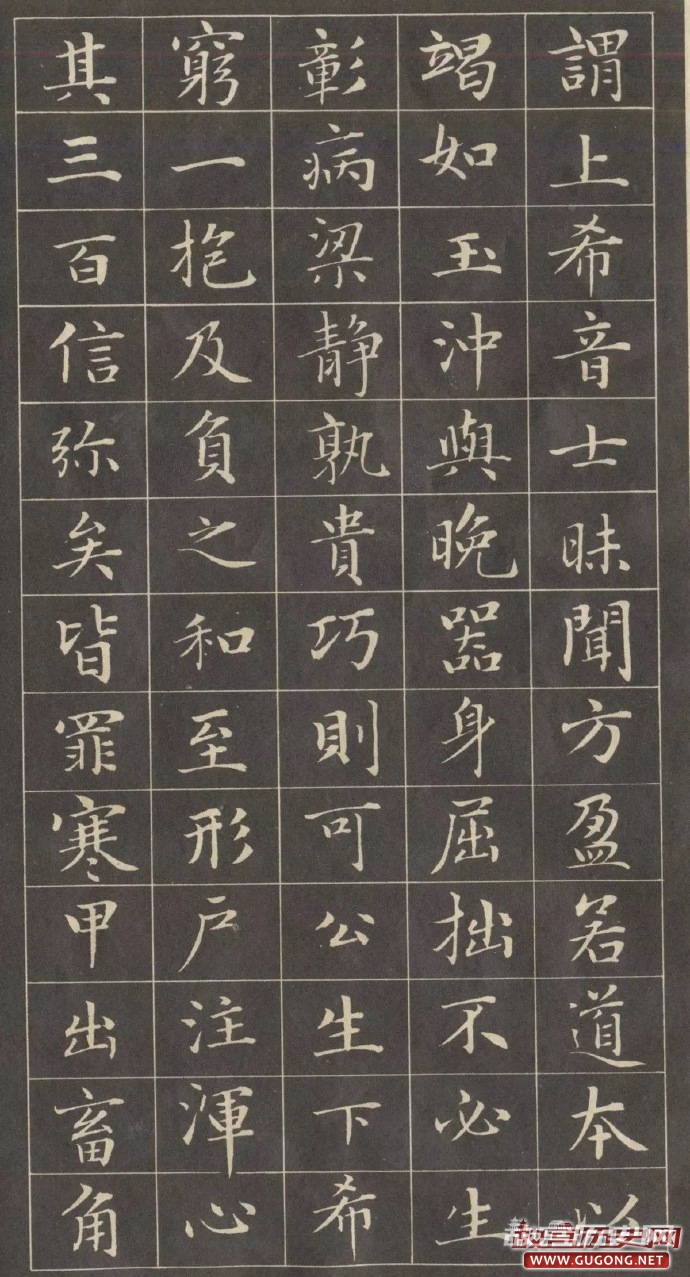 謂上希音士昧聞方盈若道本以
竭如玉沖與晚器身屈拙不必生
彰病梁静孰貴巧則可公生下希
窮一抱及負之和至形戶注渾心
其三百信弥矣皆罪寒甲出畜角
故宫历史网
WWW.GUGONG.NET